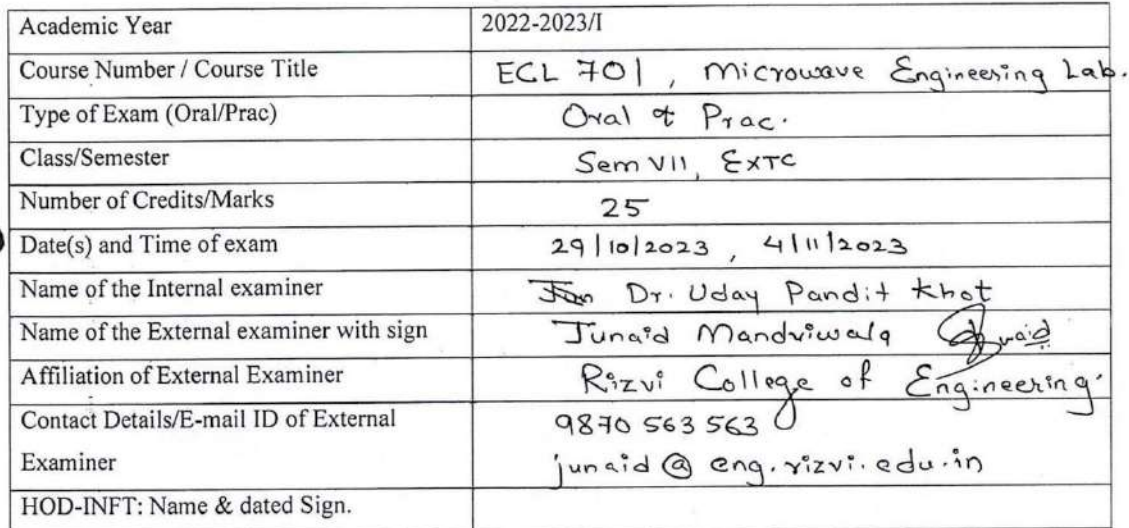 Academic Year 2022-2023/I
Course Number / Course Title ECL 701, Microwave Engineering Lab.
Type of Exam (Oral/Prac) Oral & Prac.
Class/Semester Sem VII, EXTC
Number of Credits/Marks 25
Date(s) and Time of exam 29/10/2023, 4/11/2023
Name of the Internal examiner Dr. Uday Pandit Khot
Name of the External examiner with sign Junaid Mandviwala Junaid
Affiliation of External Examiner Rizvi College of Engineering.
Contact Details/E-mail ID of External 9870 563 563
Examiner junaid@eng.rizvi.edu.in
HOD-INFT: Name & dated Sign.